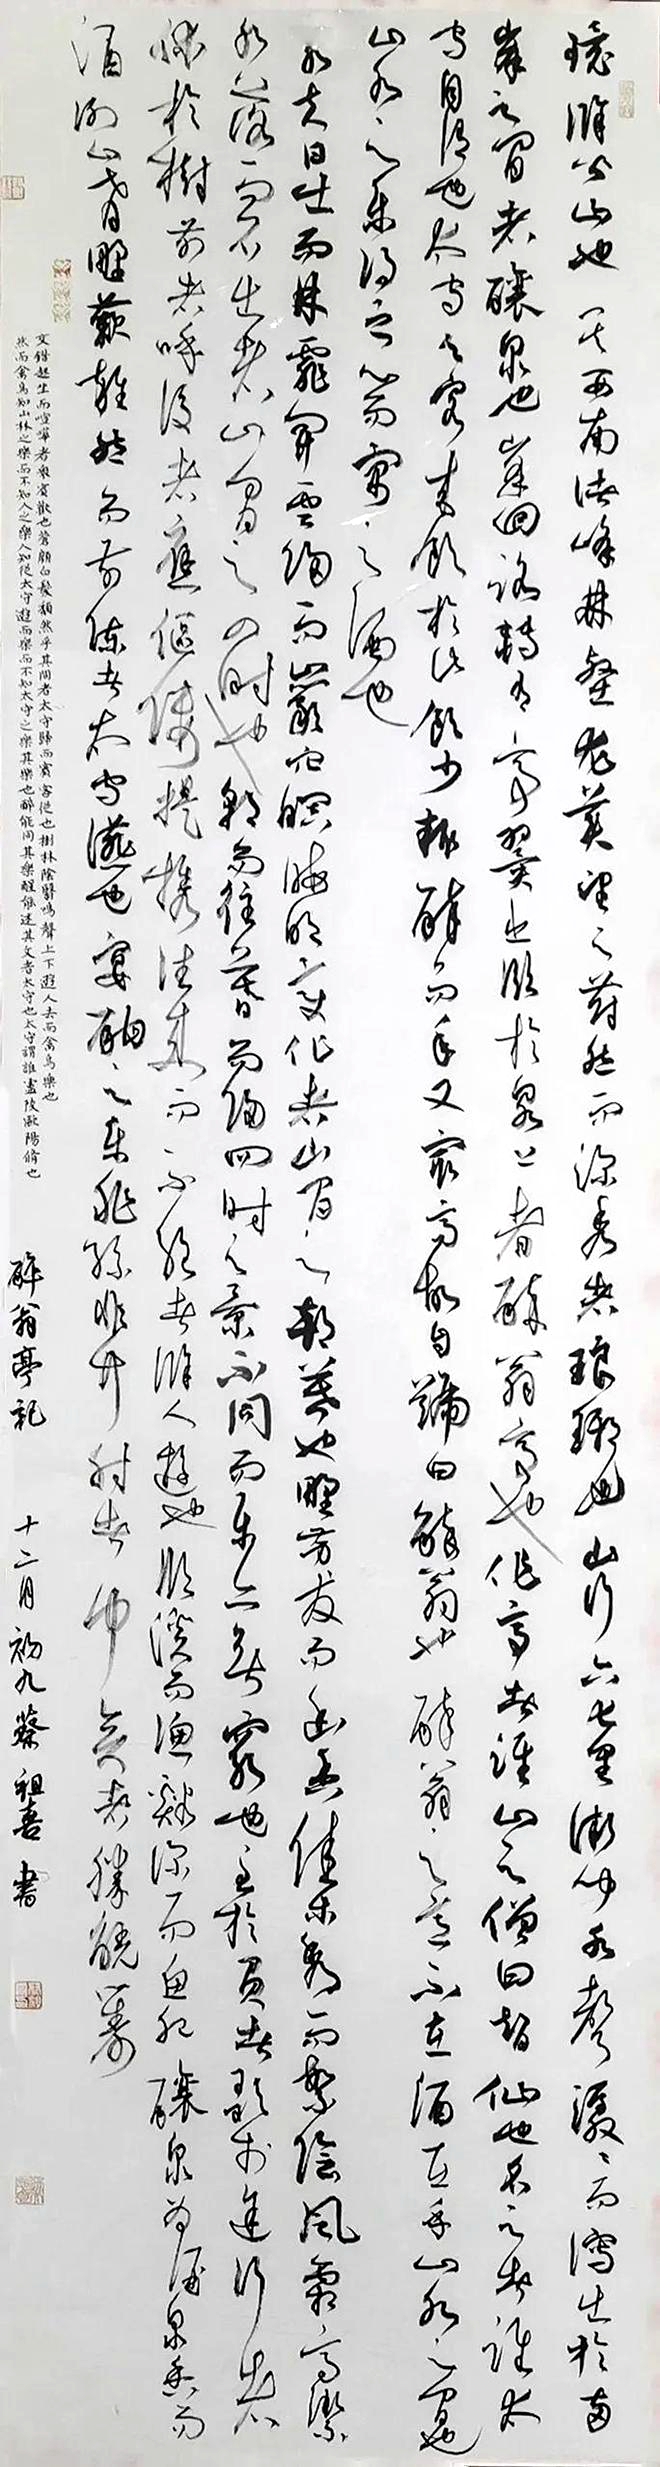 環滁皆山也其西南諸峰林壑尤美望之蔚然而深秀者琅琊也山行六七里漸聞水聲潺潺而瀉出於兩
峯之間者釀泉也峯回路轉有亭翼然臨於泉上者醉翁亭也作亭者誰山之僧曰智仙也名之者誰太
守自謂也太守與客來飲於此飲少輒醉而年又最高故自號曰醉翁也醉翁之意不在酒在乎山水之間也
山水之樂得之心而寓之酒也
若夫日出而林霏開雲歸而巖穴暝晦明變化者山間之朝暮也野芳發而幽香佳木秀而繁陰風霜高潔
水落而石出者山間之四時也朝而往暮而歸四時之景不同而樂亦無窮也至於負者歌於途行者
休於樹前者呼後者應傴僂提攜往來而不絕者滁人遊也臨溪而漁溪深而魚肥釀泉為酒泉香而
酒洌山肴野蔌雜然而前陳者太守宴也宴酣之樂非絲非竹射者中弈者勝觥籌
交錯起坐而喧嘩者衆賓歡也蒼顏白髮頹然乎其間者太守歸而賓客從也樹林陰翳鳴聲上下遊人去而禽鳥樂也
然而禽鳥知山林之樂而不知人之樂人知從太守遊而樂而不知太守之樂其樂也醉能同其樂醒能述其文者太守也太守謂誰廬陵歐陽脩也
醉翁亭記 十二月初九蔡祖喜書